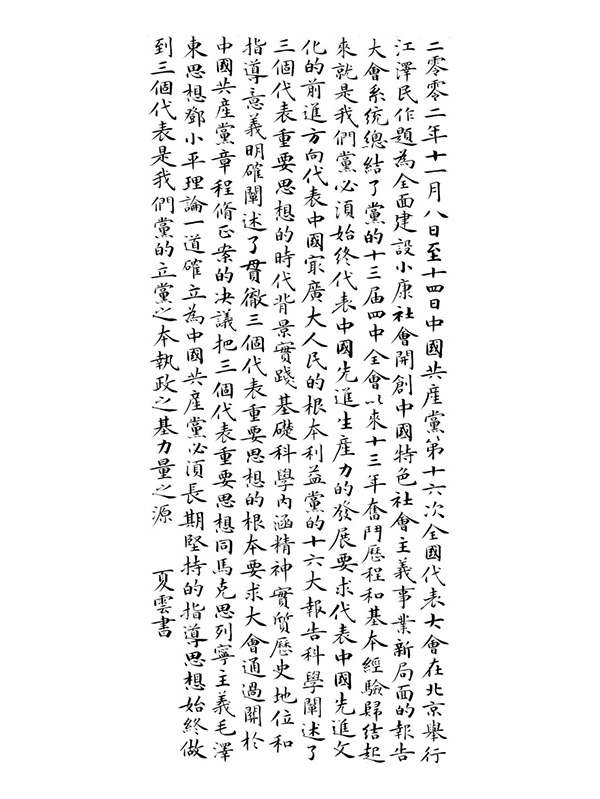 二零零二年十一月八日至十四日中國共產黨第十六次全國代表大會在北京舉行
江澤民作題為全面建設小康社會開創中國特色社會主義事業新局面的報告
大會系統總結了黨的十三届四中全會以來十三年奮鬥歷程和基本經驗歸結起
來就是我們黨必須始終代表中國先進生產力的發展要求代表中國先進文
化的前進方向代表中國最廣大人民的根本利益黨的十六大報告科學闡述了
三個代表重要思想的時代背景實踐基礎科學內涵精神實質歷史地位和
指導意義明確闡述了貫徹三個代表重要思想的根本要求大會通過關於
中國共產黨章程脩正案的决議把三個代表重要思想同馬克思列寧主義毛澤
東思想鄧小平理論一道確立為中國共產黨必須長期堅持的指導思想始終做
到三個代表是我們黨的立黨之本執政之基力量之源
夏雲書